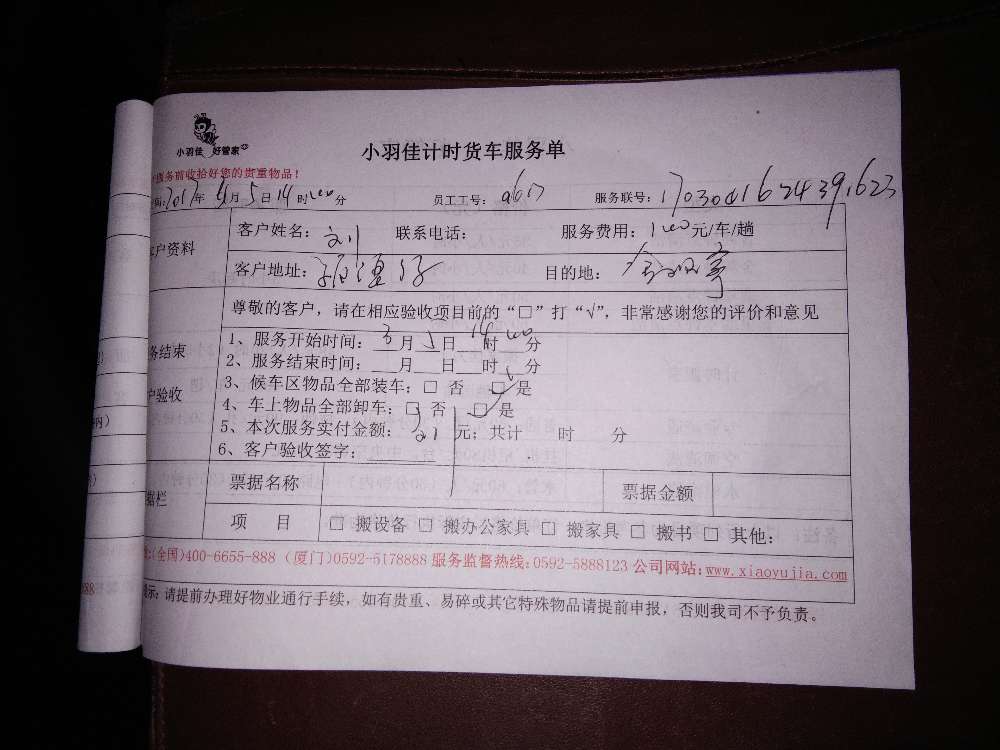 小羽佳 好管家
小羽佳计时货车服务单
服务前收拾好您的贵重物品！
2017年 月5日14时00分 员工工号： 服务联号：
客户资料 客户姓名：刘 联系电话： 服务费用：100元/车/趟
客户地址： 目的地：
尊敬的客户，请在相应验收项目前的“□”打“√”，非常感谢您的评价和意见
务结束
户验收
1、服务开始时间：3月5日14时00分
2、服务结束时间： 月 日 时 分
3、候车区物品全部装车：□ 否 □ 是
4、车上物品全部卸车：□ 否 □ 是
5、本次服务实付金额： 元；共计 时 分
6、客户验收签字：
据栏 票据名称 票据金额
项 目 □ 搬设备 □ 搬办公家具 □ 搬家具 □ 搬书 □ 其他：
(全国)400-6655-888 (厦门)0592-5178888 服务监督热线：0592-5888123 公司网站：www.xiaoyujia.com
示：请提前办理好物业通行手续，如有贵重、易碎或其它特殊物品请提前申报，否则我司不予负责。